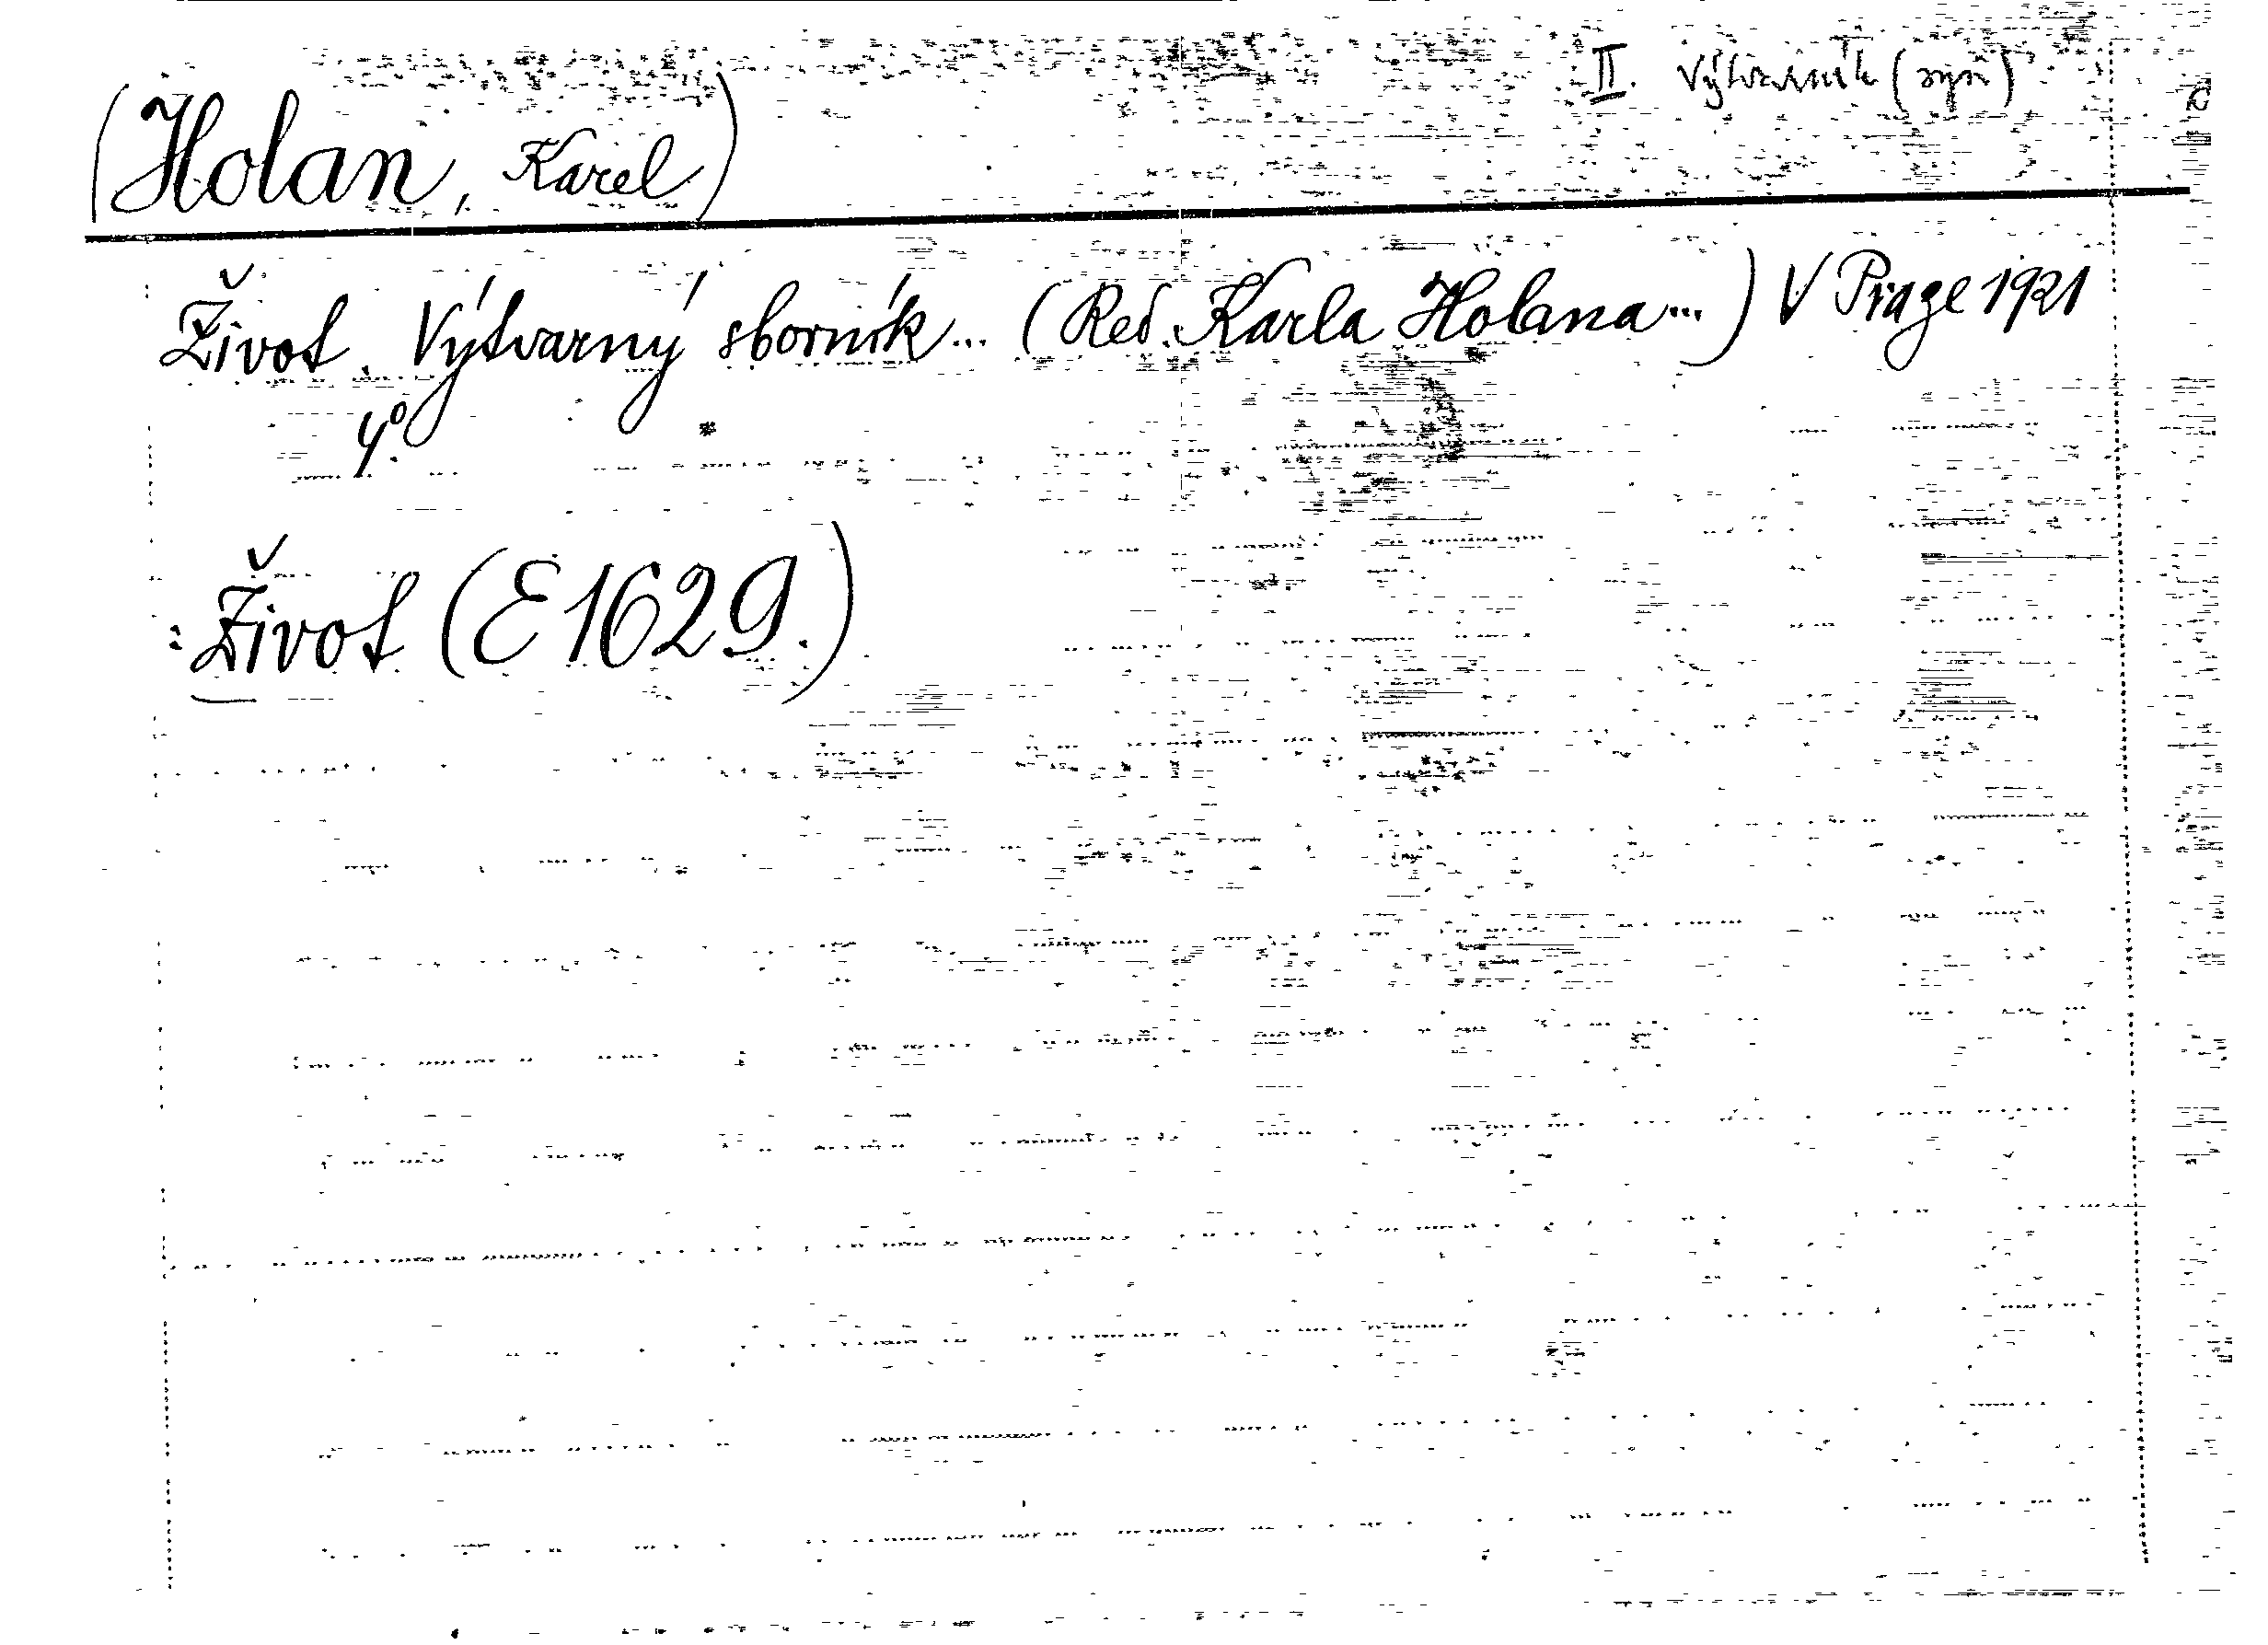 II. Výtvarník (syn)
(Holan, Karel)
Život. Výtvarný sborník... (Red. Karla Holana...) V Praze 1921
4°.
: Život (E 1629.)